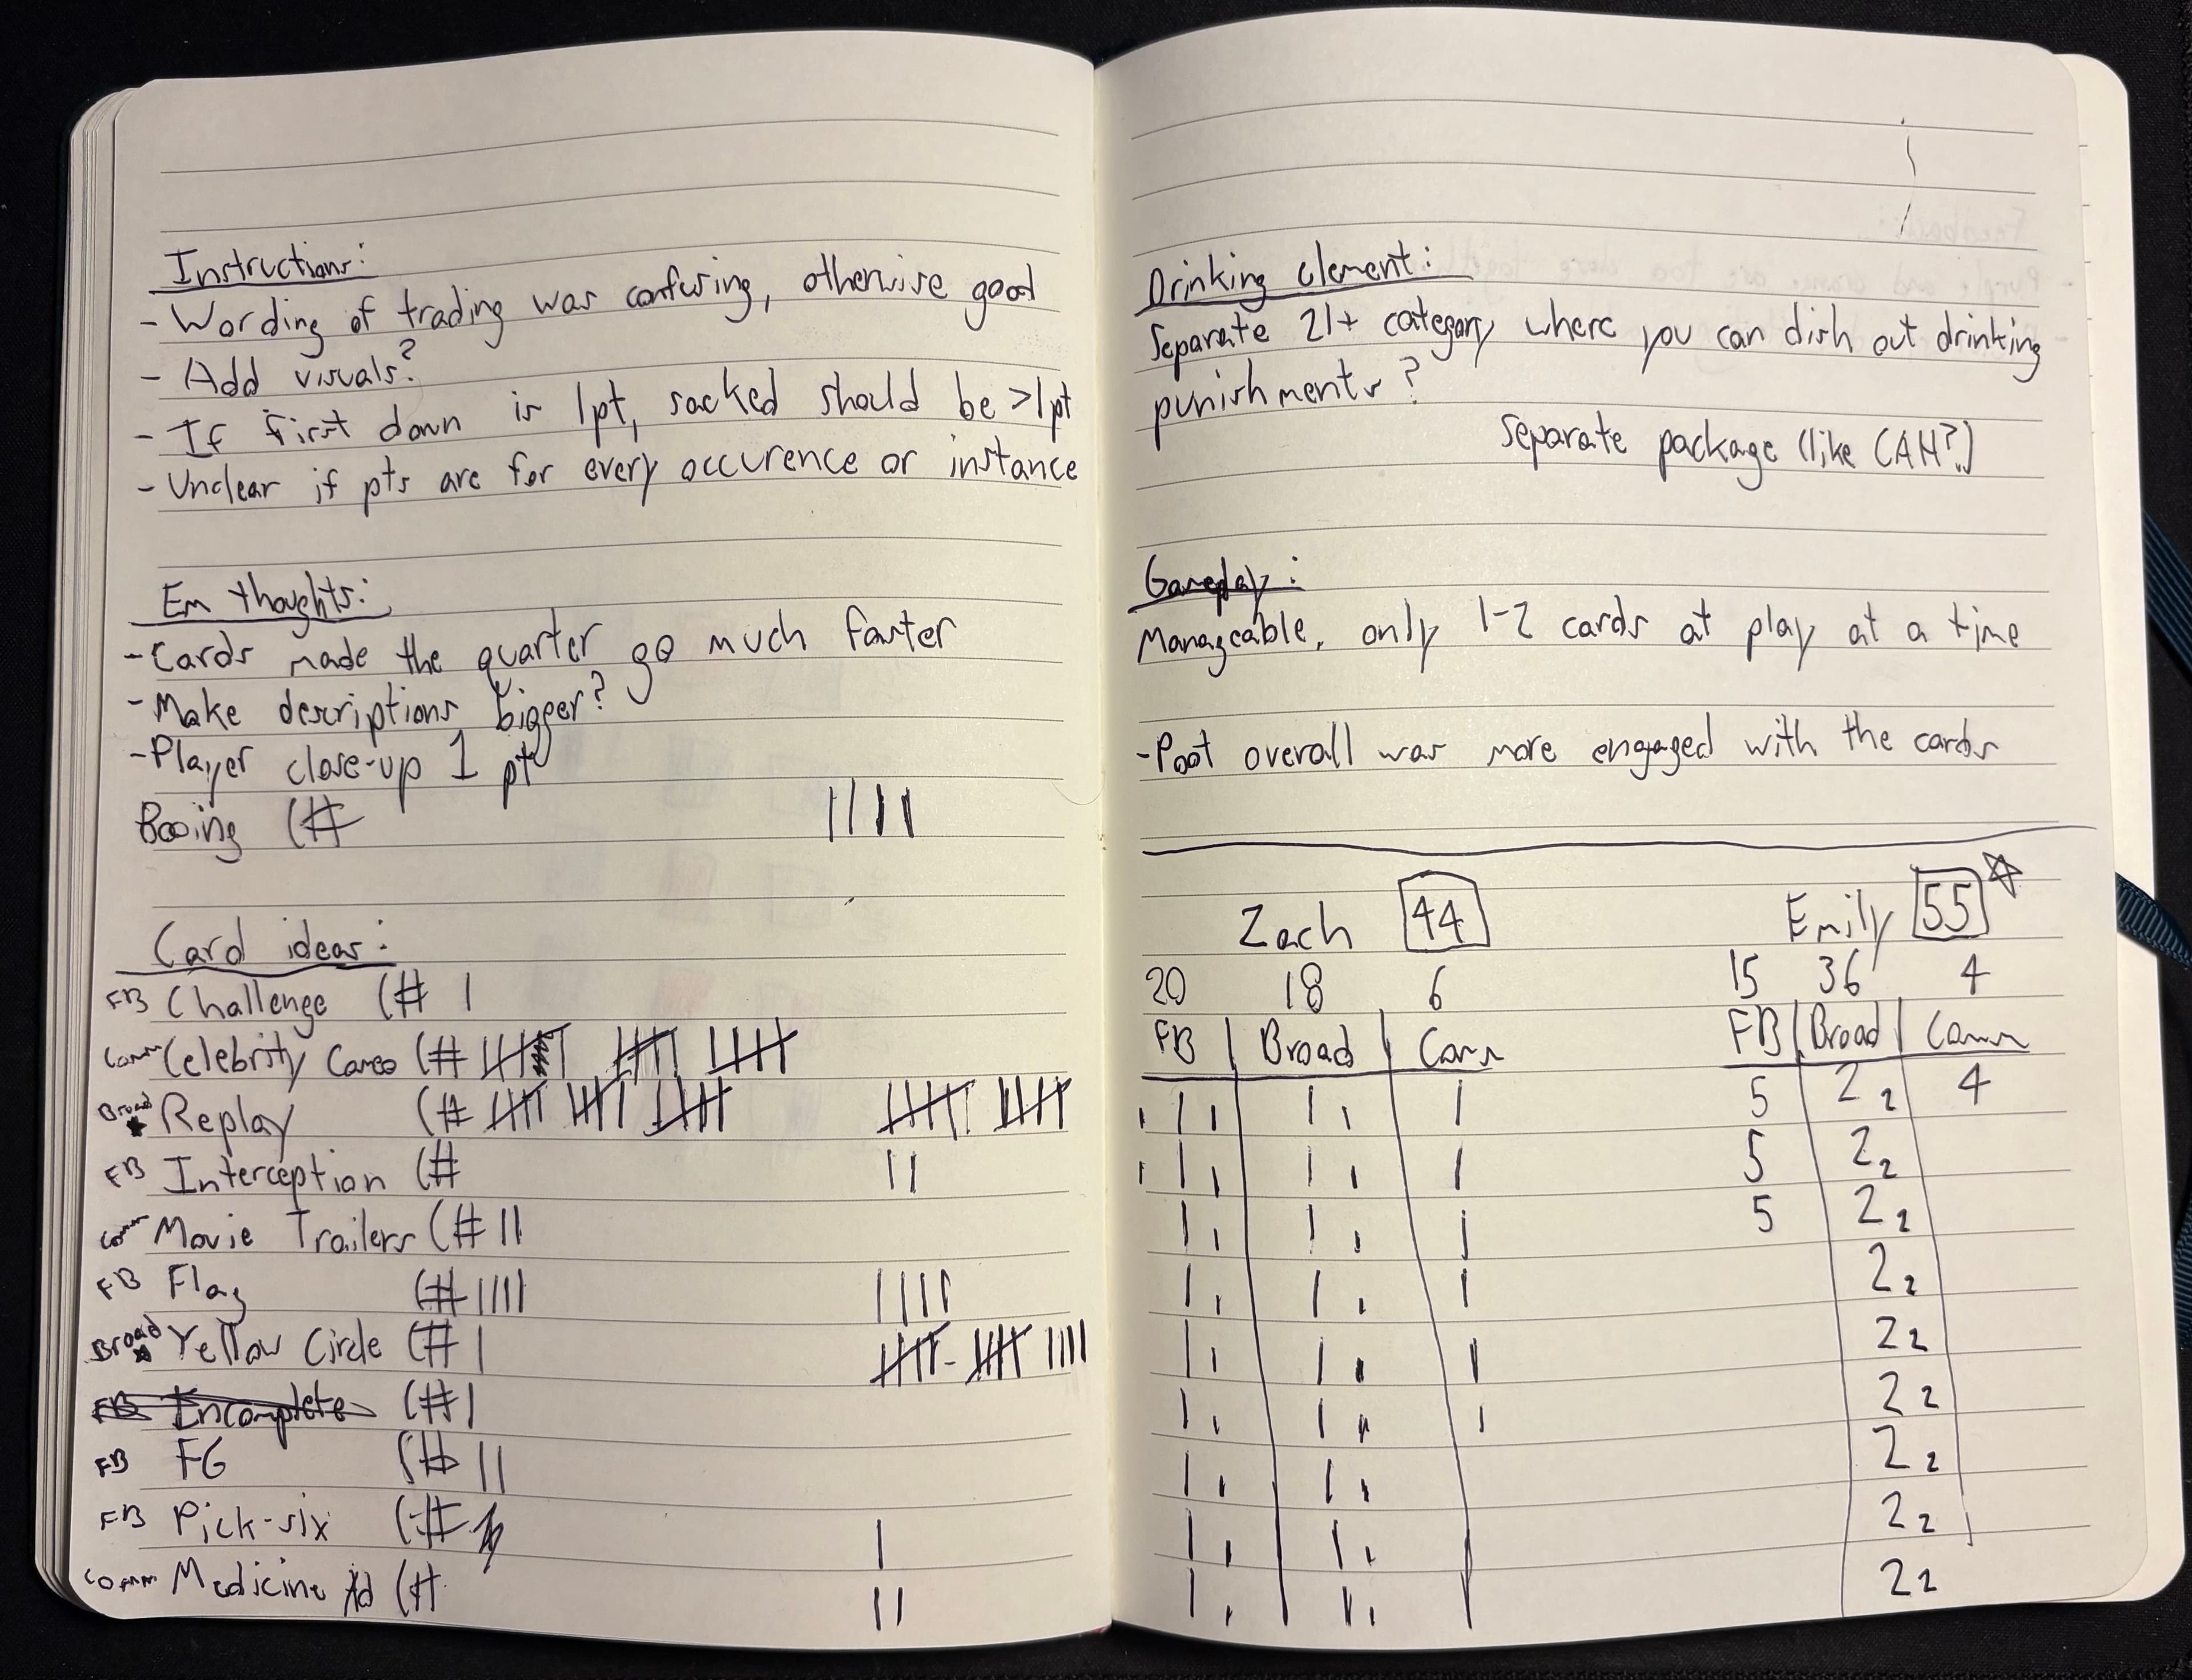 Instructions:
- Wording of trading was confusing, otherwise good
- Add visuals?
- If first down is 1pt, sacked should be >1pt
- Unclear if pts are for every occurence or instance
Em thoughts:
- Cards made the quarter go much faster
- Make descriptions bigger?
- Player close-up 1 pt
Booing (# ||||
Card ideas:
FB Challenge (# |
Comm Celebrity Cameo (# 卌 卌 卌
Broad ★ Replay (# 卌 卌 卌 卌 卌
FB Interception (# ||
Comm Movie Trailers (# ||
FB Flag (# |||| ||||
Broad ★ Yellow Circle (# | 卌 - 卌 ||||
FB Incomplete (# |
FB FG (# ||
FB Pick-six (# |
Comm Medicine Ad (# ||
Drinking element:
Separate 21+ category where you can dish out drinking
punishments?
Separate package (like CAH?)
Gameplay:
Manageable, only 1-2 cards at play at a time
- Poot overall was more engaged with the cards
Zach 44 Emily 55 ☆
20 18 6 15 36 4
FB | Broad | Comm FB | Broad | Comm
, | , | , | 5 2 2 4
, | , | , | 5 2 2
| , | , | 5 2 2
| , | , | 2 2
| , | , | 2 2
| , | , | 2 2
| , | , 2 2
| , | , 2 2
| , | , 2 2